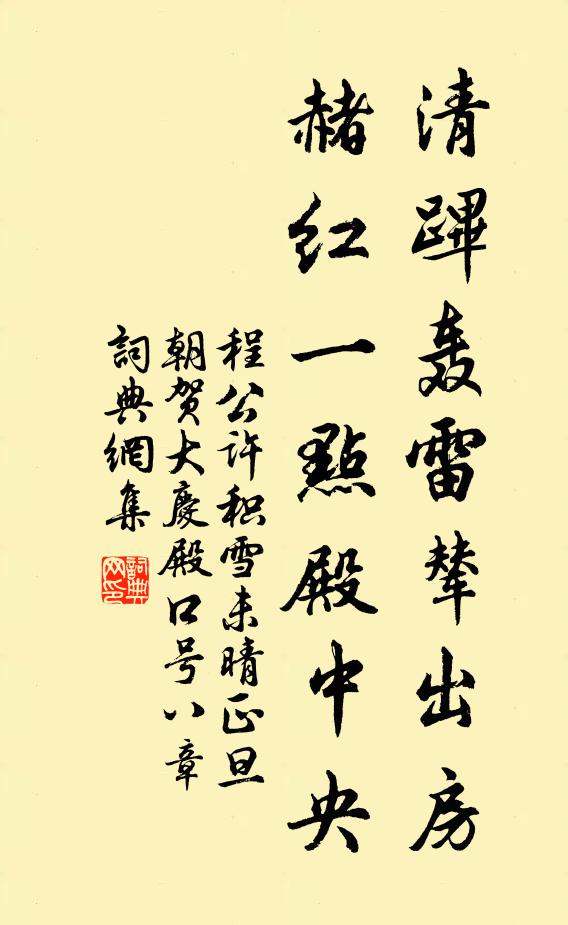 清蹕轰雷辇出房
赭红一點殿中央
程公许积雪未晴正旦
朝贺大慶殿口号八章
詞典網集
詞典网印